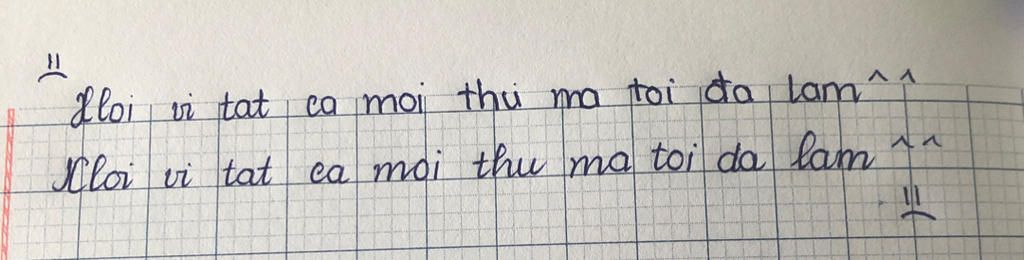 Xloi vi tat ca moi thu ma toi da lam ^^
Xloi vi tat ca moi thu ma toi da lam ^^